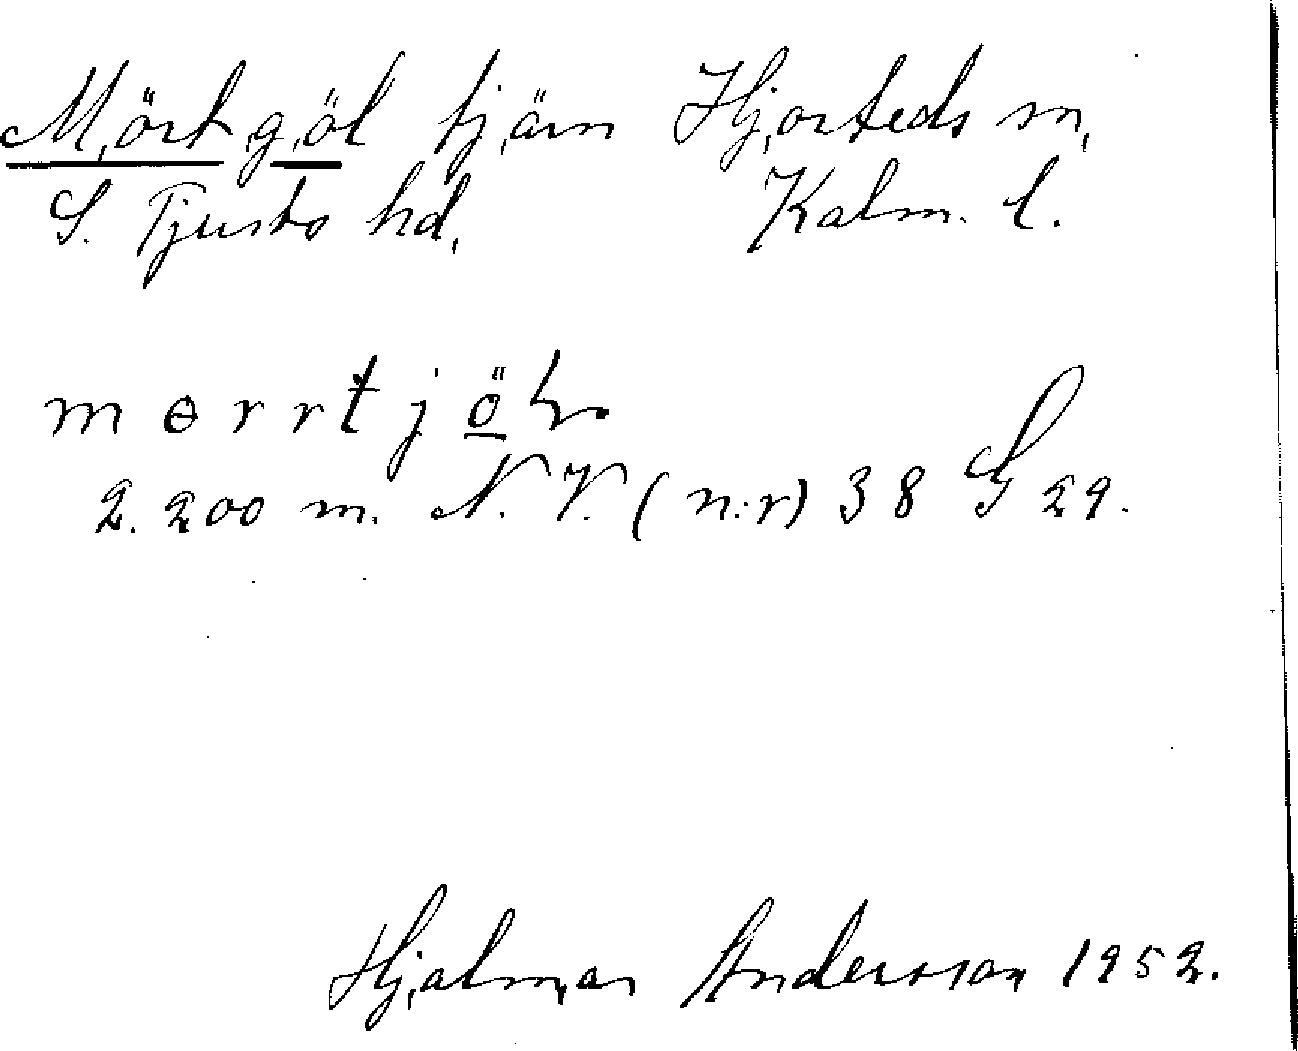 Mörtgöl tjärn Hjorteds sn,
S. Tjusts hd, Kalm. l.
mɵrrtjöl
2.200 m. N.V. (n:r) 38 S 29.
Hjalmar Andersson 1952.